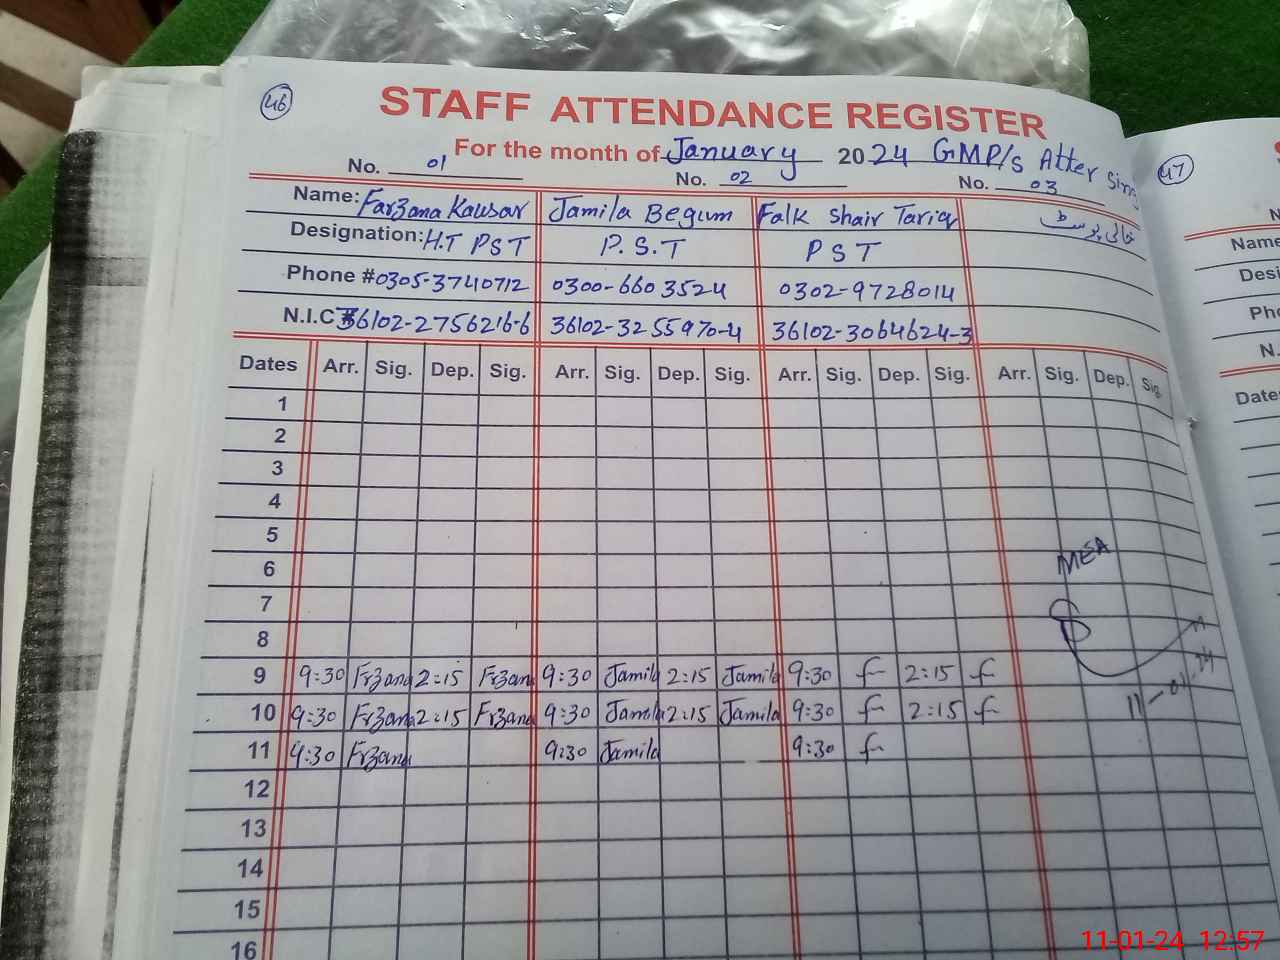 46
STAFF ATTENDANCE REGISTER
For the month of January 2024 GMP/s Atter Sing
No. 01 No. 02 No. 03
Name: Farzana Kausar Jamila Begum Falk Shair Tariq خالی پوسٹ
Designation: H.T PST P.S.T PST
Phone # 0305-3740712 0300-6603524 0302-9728014
N.I.C # 36102-2756216-6 36102-3255970-4 36102-3064624-3
Dates Arr. Sig. Dep. Sig. Arr. Sig. Dep. Sig. Arr. Sig. Dep. Sig. Arr. Sig. Dep. Sig.
1
2
3
4
5
6
MEA
7
8
9 9:30 Frzana 2:15 Frzana 9:30 Jamila 2:15 Jamila 9:30 f 2:15 f
10 9:30 Frzana 2:15 Frzana 9:30 Jamila 2:15 Jamila 9:30 f 2:15 f
11-01-24
11 9:30 Frzana 9:30 Jamila 9:30 f
12
13
14
15
16
47
Name
Desi
Pho
N.
Date
11-01-24 12:57